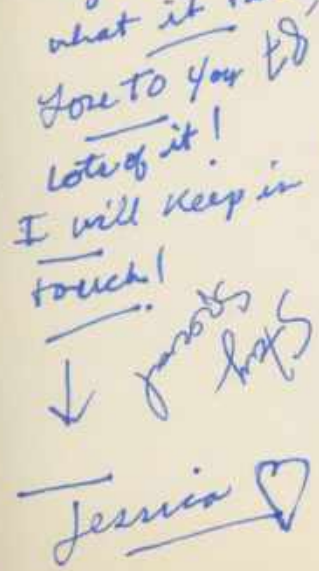 what it
Love To you &
lots of it!
I will keep in
touch!
Stay
Jessica